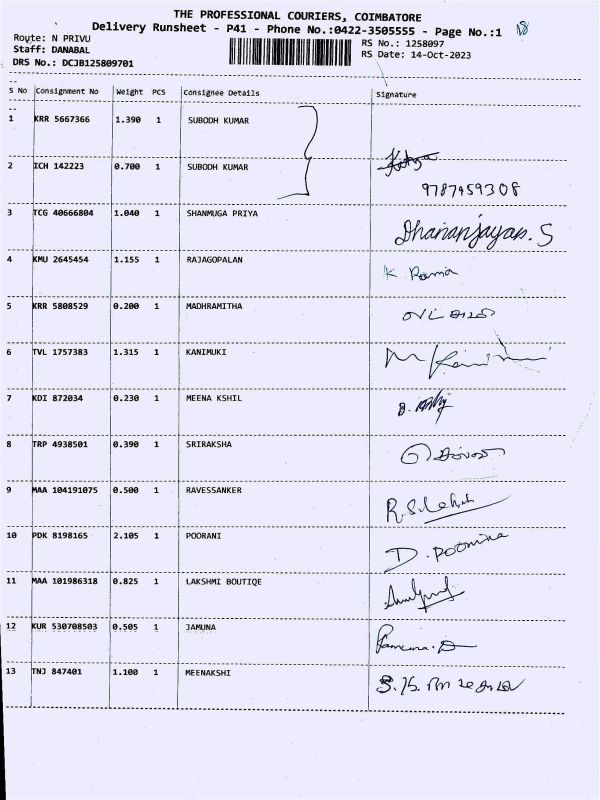 THE PROFESSIONAL COURIERS, COIMBATORE
Delivery Runsheet - P41 - Phone No.:0422-3505555 - Page No.:1
Route: N PRIVU
RS No.: 1258097
Staff: DANABAL
RS Date: 14-Oct-2023
DRS No.: DCJB125809701
S No Consignment No Weight PCS Consignee Details Signature
1 KRR 5667366 1.390 1 SUBODH KUMAR
2 ICH 142223 0.700 1 SUBODH KUMAR
9787459308
3 TCG 40666804 1.040 1 SHANMUGA PRIYA Dhananjayan. S
4 KMU 2645454 1.155 1 RAJAGOPALAN K Rama
5 KRR 5808529 0.200 1 MADHRAMITHA
6 TVL 1757383 1.315 1 KANIMUKI
7 KDI 872034 0.230 1 MEENA KSHIL
8 TRP 4938501 0.390 1 SRIRAKSHA
9 MAA 104191075 0.500 1 RAVESSANKER
10 PDK 8198165 2.105 1 POORANI D. Poornima
11 MAA 101986318 0.825 1 LAKSHMI BOUTIQE
12 KUR 530708503 0.505 1 JAMUNA
13 TNJ 847401 1.100 1 MEENAKSHI